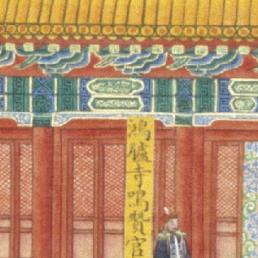 鴻臚寺鳴贊官